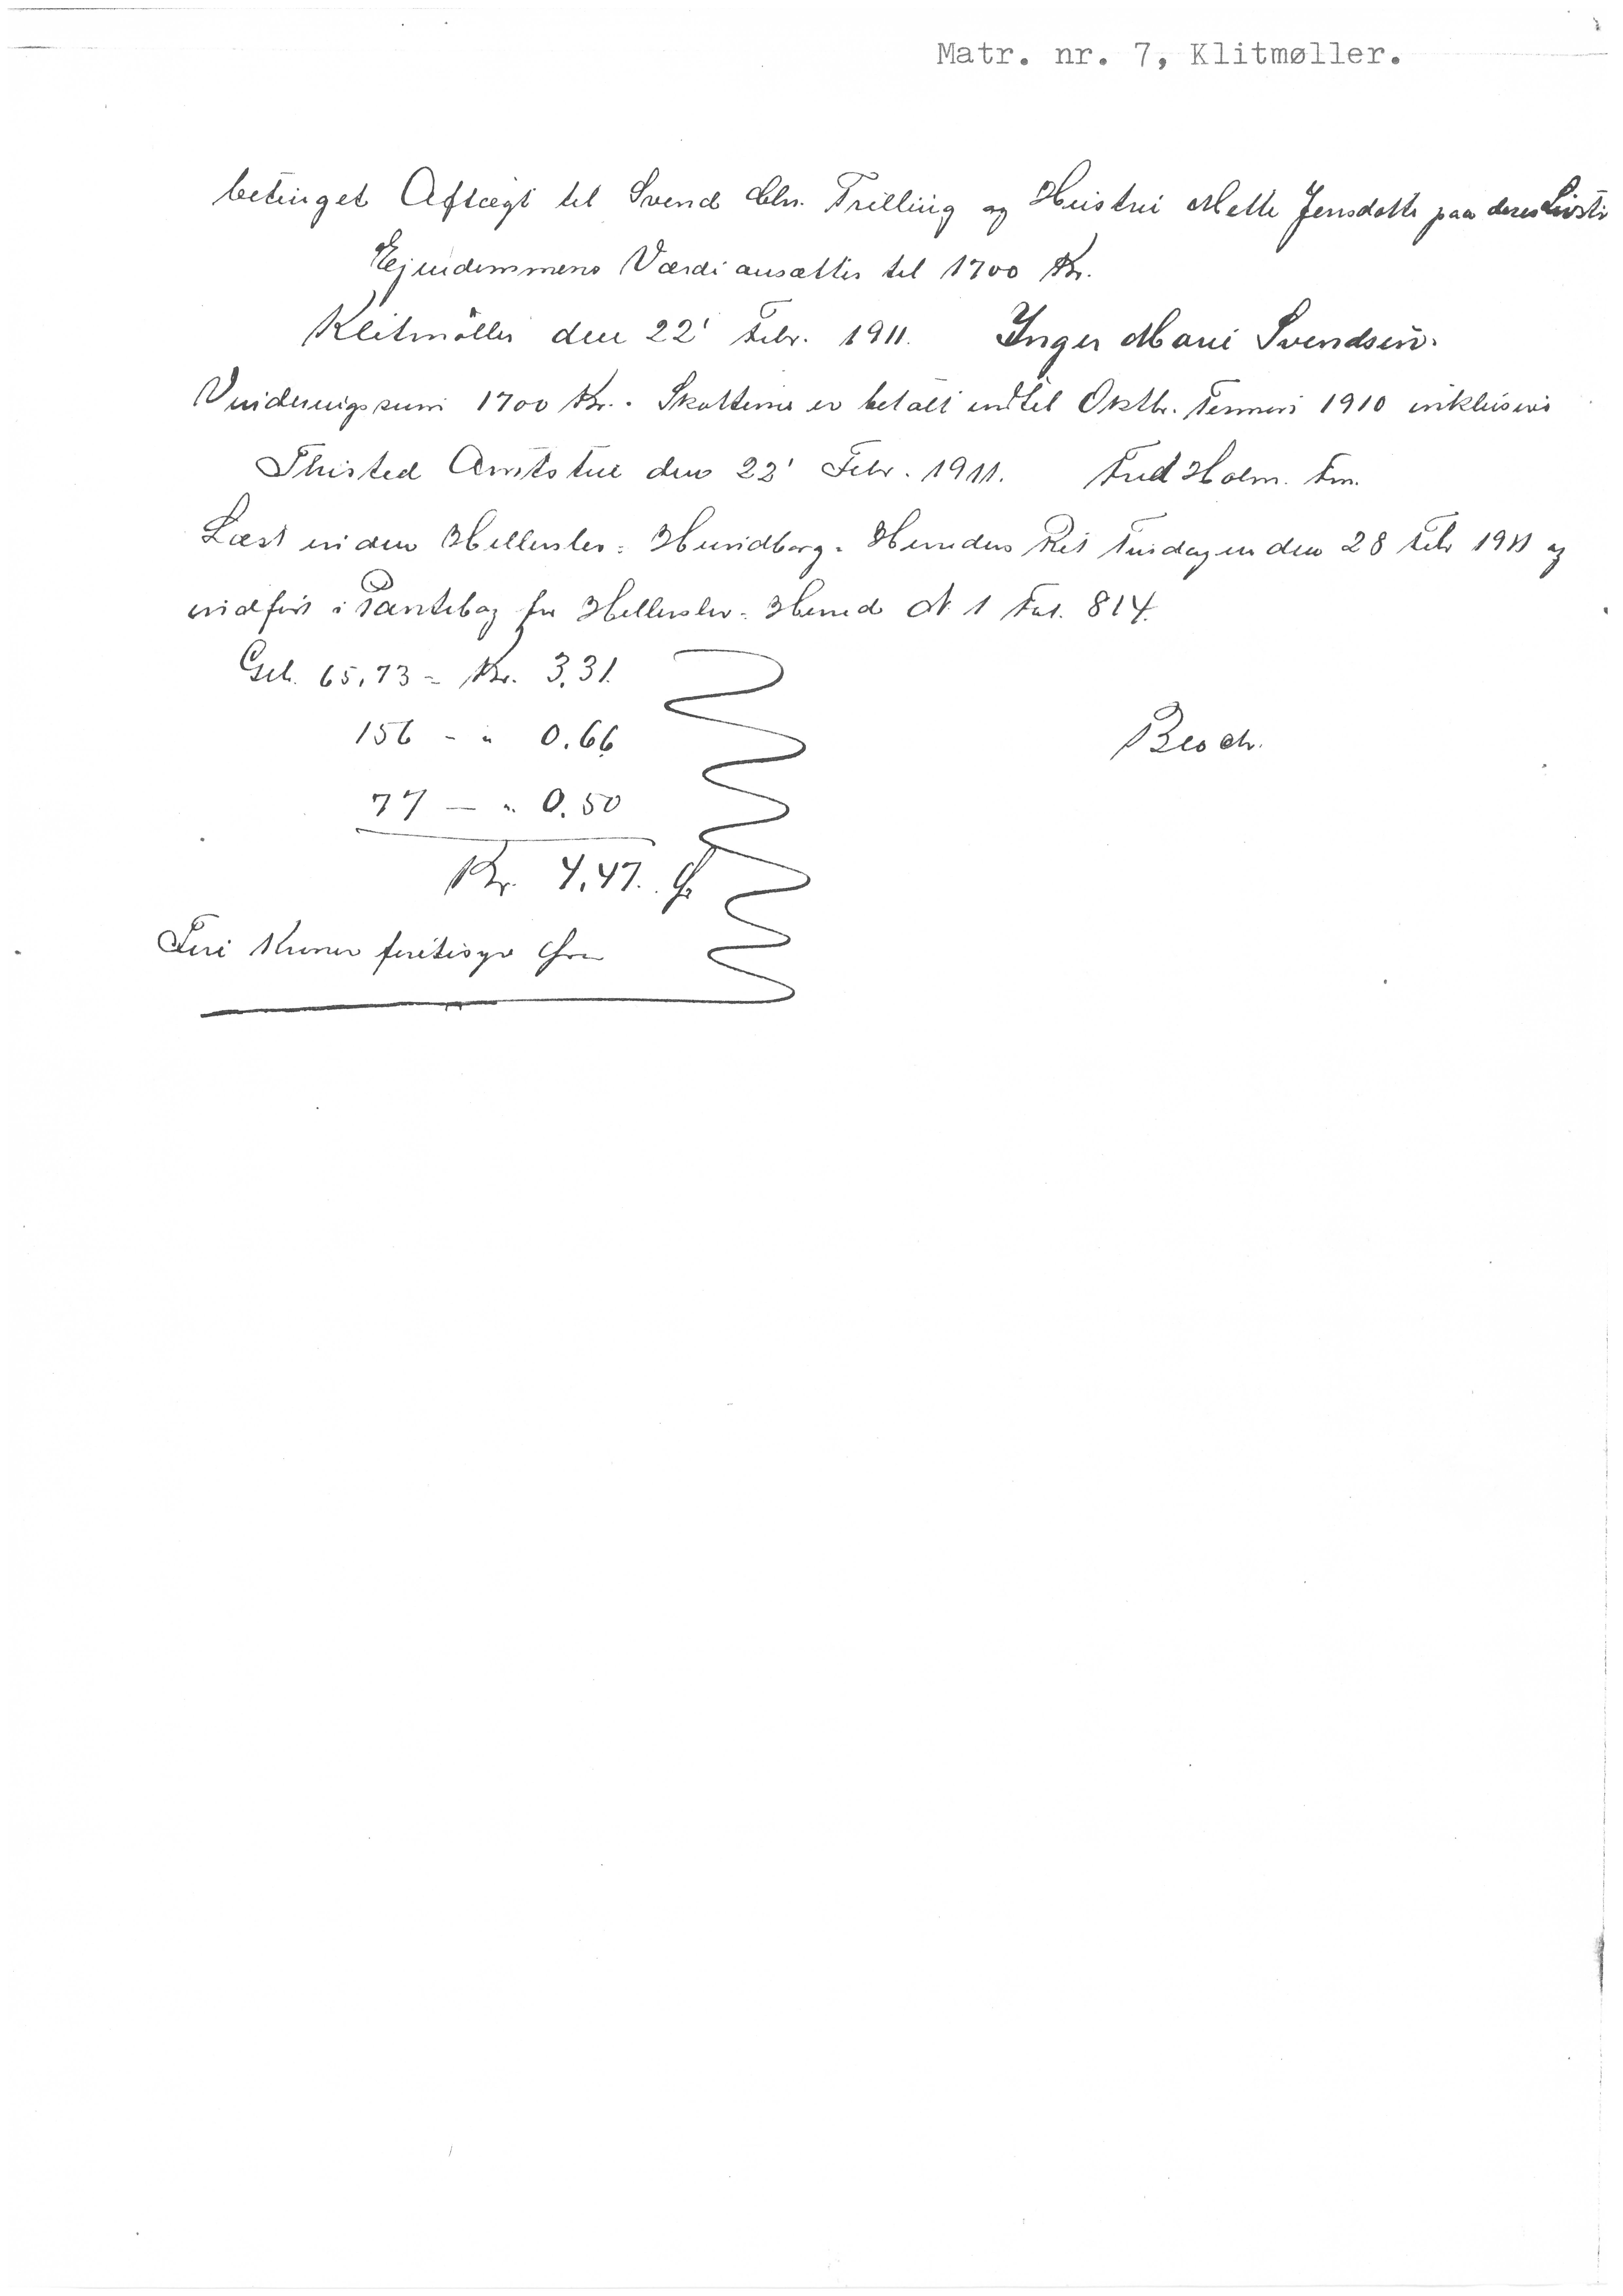 Matr. nr. 7, Klitmøller.
betinget Aftægt til Svend Chr. Trilling og Hustru Mette Jensdatter paa deres Livstid
Ejendommens Værdi ansættes til 1700 Kr.
Klitmøller den 22' Febr. 1911. Inger Marie Svendsen.
Vurderingssum 1700 Kr. Skatterne er betalt indtil Oktbr. Termin 1910 inklusive
Thisted Amtstue den 22' Febr. 1911. Holm. Fm.
Læst inden Hillerslev = Hundborg = Herreders Ret Tirsdagen den 28 Febr 1911 og
indført i Pantebog for Hillerslev = Herred N 1 Fol. 814.
Geb. 65,73 = Kr. 3,31.
156 - " 0.66
77 — " 0.50
Kr. 4,47. Ør
Fire Kroner firetisyv Øre